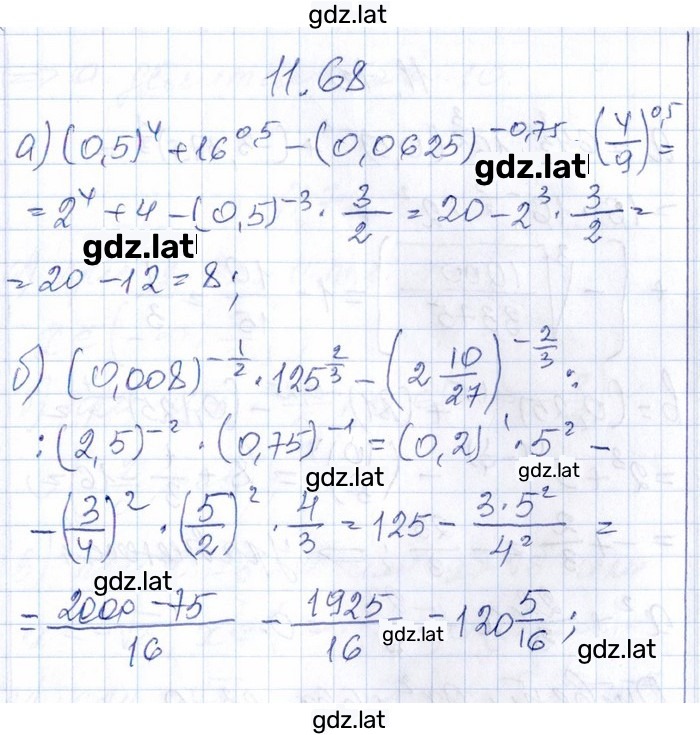 gdz.lat
11.68
а) (0,5)⁴ + 16^0,5 − (0,0625)^−0,75 · (4/9)^0,5 =
gdz.lat
= 2⁴ + 4 − (0,5)^−3 · 3/2 = 20 − 2³ · 3/2 =
gdz.lat
= 20 − 12 = 8;
б) (0,008)^−1/2 · 125^2/3 − (2 10/27)^−2/3 :
: (2,5)^−2 · (0,75)^−1 = (0,2)^1 · 5² −
gdz.lat gdz.lat
− (3/4)² · (5/2)² · 4/3 = 125 − 3·5²/4² =
gdz.lat
= 2000 − 75/16 − 1925/16 - - 120 5/16;
gdz.lat gdz.lat
gdz.lat